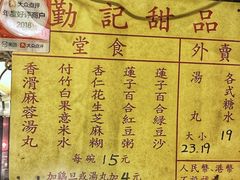 大众点评
年度好评商户
2018
美团 大众点评
勤記甜品
堂食
外賣
蓮子百合綠豆沙
蓮子百合紅豆粥
杏仁花生芝麻糊
付竹白果薏米水
香滑麻蓉湯丸
每碗15元
加雞旦或湯丸加4元
各式糖水 19
湯丸
大小
23.19
人民幣、港幣